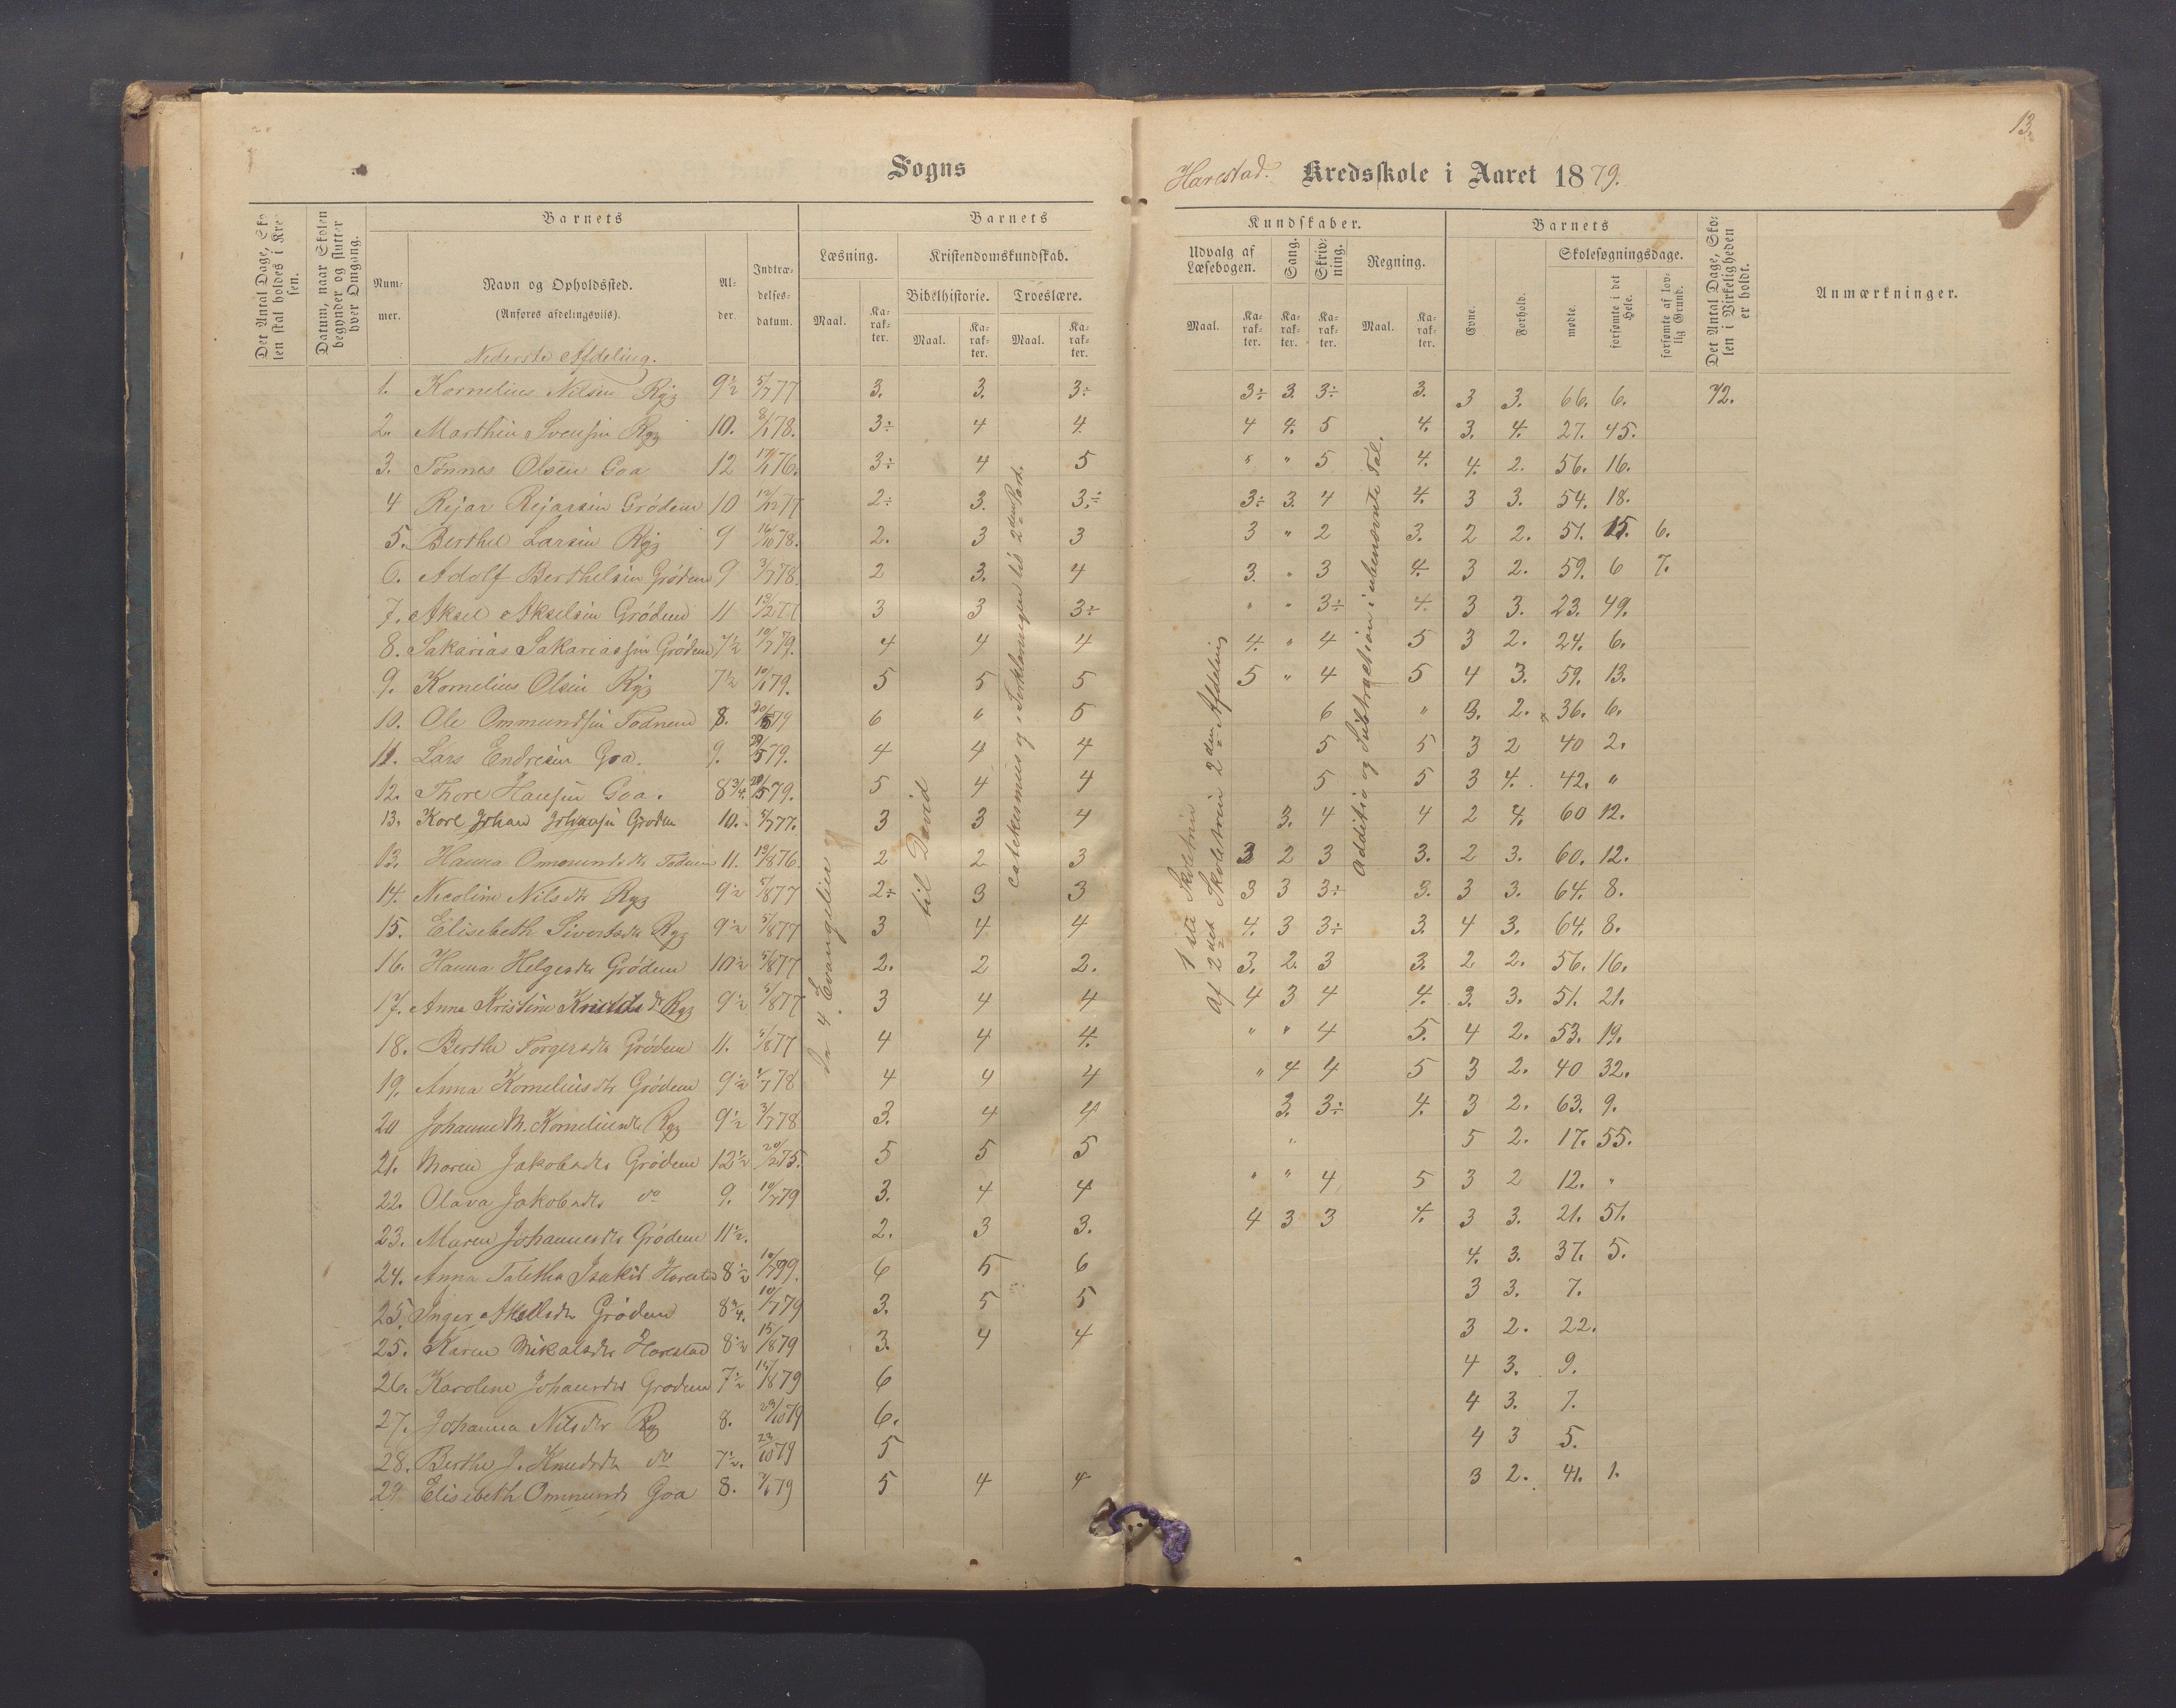 13.
Sogns
Harestad. Kredsskole i Aaret 1879.
Det Antal Dage, Skolen skal holdes i Kredsen.
Datum, naar Skolen begynder og slutter hver Omgang.
Barnets
Nummer.
Navn og Opholdssted.
(Anføres afdelingsviis).
Alder.
Indtrædelsesdatum.
Barnets
Læsning.
Kristendomskundskab.
Bibelhistorie.
Troeslære.
Maal.
Karakter.
Maal.
Karakter.
Maal.
Karakter.
Kundskaber.
Udvalg af Læsebogen.
Sang.
Skrivning.
Regning.
Maal.
Karakter.
Karakter.
Karakter.
Maal.
Karakter.
Barnets
Evne.
Forhold.
Skolesøgningsdage.
mødte.
forsømte i det Hele.
forsømte af lovlig Grund.
Det Antal Dage, Skolen i Virkeligheden er holdt.
Anmærkninger.
Nederste Afdeling.
1. Kornelius Nilsen Ryg 9½ 5/7 77 3. 3. 3÷ 3÷ 3. 3÷ 3. 3 3. 66. 6. 72.
2. Marthin Svensen Ryg 10. 8/1 78. 3÷ 4 4. 4 4. 5 4. 3. 4. 27. 45.
3. Tønnes Olsen Goa 12 17/1 76. 3÷ 4 5 " " 5 4. 4. 2. 56. 16.
4 Rejar Rejarsen Grødem 10 12/12 77 2÷ 3. 3÷ 3÷ 3. 4 4. 3 3. 54. 18.
5. Berthel Larsen Ryg 9 16/10 78. 2. 3 3 3 " 2 3. 2 2. 51. 15. 6.
6. Adolf Berthelsen Grødem 9 3/7 78. 2 3. 4 3. " 3 4. 3 2. 59. 6 7.
7. Aksel Akselsen Grødem 11 13/2 77 3 3 3÷ " " 3÷ 4. 3 3. 23. 49.
8. Sakarias Sakariassen Grødem 7½ 10/7 79. 4 4 4 4. " 4 5 3 2. 24. 6.
9. Kornelius Olsen Ryg 7½ 10/1 79. 5 5 5 5 " 4 5 4 3. 59. 13.
10. Ole Ommundsen Todnem 8. 20/5 79 6 " 5 6 " 3. 2. 36. 6.
11. Lars Endresen Goa. 9. 29/5 79. 4 4 4 5 5 3 2 40 2.
12. Thore Hansen Goa. 8¾. 29/5 79. 5 4 4 5 5 3 4. 42. "
13. Karl Johan Johansen Grødem 10. 5/7 77. 3 3 4 3. 4 4 2 4. 60 12.
13. Hanna Ommundsdtr Todnem 11. 19/8 76. 2 2 3 3 2 3 3. 2 3. 60. 12.
14. Nicoline Nilsdtr Ryg 9½ 5/8 77 2÷ 3 3 3 3 3÷ 3. 3 3. 64. 8.
15. Elisebeth Sivertsdtr Ryg 9½ 5/8 77 3 4 4 4. 3 3÷ 3. 4 3. 64. 8.
16. Hanna Helgesdtr Grødem 10½ 5/8 77 2. 2 2. 3. 2. 3 3. 2 2. 56. 16.
17. Anna Kristine Ryg 9½ 5/8 77 3 4 4 4 3 4 4. 3. 3. 51. 21.
18. Berthe Torgersdtr Grødem 11. 5/8 77 4 4 4. " " 4 5. 4 2. 53. 19.
19. Anna Korneliusdtr Grødem 9½ 1/7 78 4 4 4 " 4 4 5 3 2. 40 32.
20 Johanne M. Korneliusdtr Ryg 9½ 3/7 78 3. 4 4 3. 3÷ 4. 3 2. 63. 9.
21. Maren Jakobsdtr Grødem 12½ 20/2 75. 5 5 5 " 5 2. 17. 55.
22. Olava Jakobsdtr do 9. 10/7 79 3. 4 4 " " 4 5 3 2 12. "
23. Maren Johannesdtr Grødem 11½. 2. 3 3. 4 3 3 4. 3 3. 21. 51.
24. Anna Taletha Isaksd Harestad 8½ 10/7 79. 6 5 6 4. 3. 37. 5.
25. Inger Akselsdtr Grødem 8¾. 10/7 79 3. 5 5 3 3. 7.
25. Karen Mikalsdtr Harestad 8½ 15/8 79 3. 4 4 3 2. 22.
26. Karoline Johansdtr Grødem 7½ 15/8 79 6 4 3. 9.
27. Johanna Nilsdtr Ryg 8. 23/10 79 6. 4 3. 7.
28. Berthe J. Knudsdtr do 7½. 23/10 79 5 4 3 5.
29 Elisebeth Ommunds Goa 8. 7/1 79 5 4 4 3 2. 41. 1.
4 Evangelier
til David
catekesmus og Forklaringen til 2den Part.
1ste Skoletrin
af 2det Skoletrin 2den Afdeling
Addition og Subtraction i ubenævnte Tal.